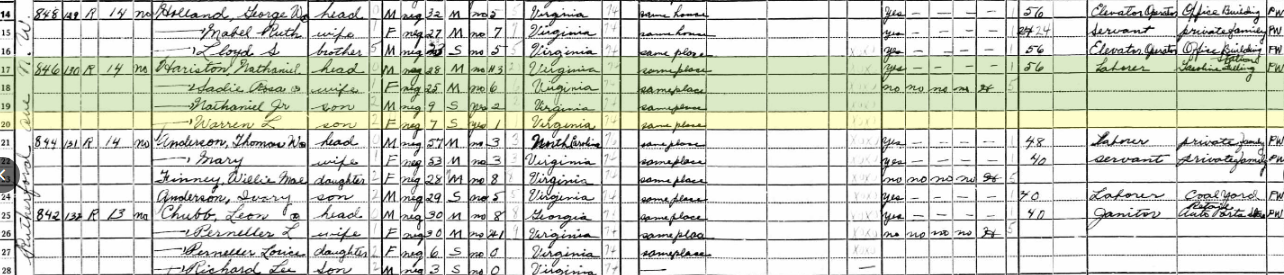 14 848 129 R 14 no Holland, George W. head M neg 32 M no 5 Virginia same house yes — — — — 56 Elevator Operator Office Building PW
15 — Mabel Ruth wife F neg 27 M no 7 Virginia same house yes — — — — 24 servant private family PW
16 — Lloyd S brother M neg S no 5 Virginia same place yes — — — — 56 Elevator Operator Office Building PW
17 846 130 R 14 no Hariston, Nathaniel head M neg 28 M no H3 Virginia same place yes — — — — 56 Laborer Gasoline Filling Station PW
18 — Sadie Rosa wife F neg 25 M no 6 Virginia same place no no no no H
19 — Nathaniel Jr son M neg 9 S yes 2 Virginia same place
20 — Warren L son F neg 7 S yes 1 Virginia same place
21 844 131 R 14 no Anderson, Thomas W head M neg 57 M no 3 North Carolina same place yes — — — — 48 Laborer private family PW
22 — Mary wife F neg 53 M no 3 Virginia same place yes — — — — 40 servant private family PW
Finney, Willie Mae daughter F neg 28 M no 8 Virginia same place no no no no H
24 Anderson, Ivory son M neg 29 S no 5 Virginia same place yes — — — — 40 Laborer Coal Yard PW
25 842 132 R 13 no Chubb, Leon head M neg 30 M no 8 Georgia same place yes — — — — 40 Janitor Retail Auto Parts PW
26 — Perneller L wife F neg 30 M no H1 Virginia same place no no no no H
27 Perneller Louise daughter F neg 6 S no 0 Virginia same place
28 — Richard Lee son M neg 3 S no 0 Virginia —
Rutherford Ave N.W.